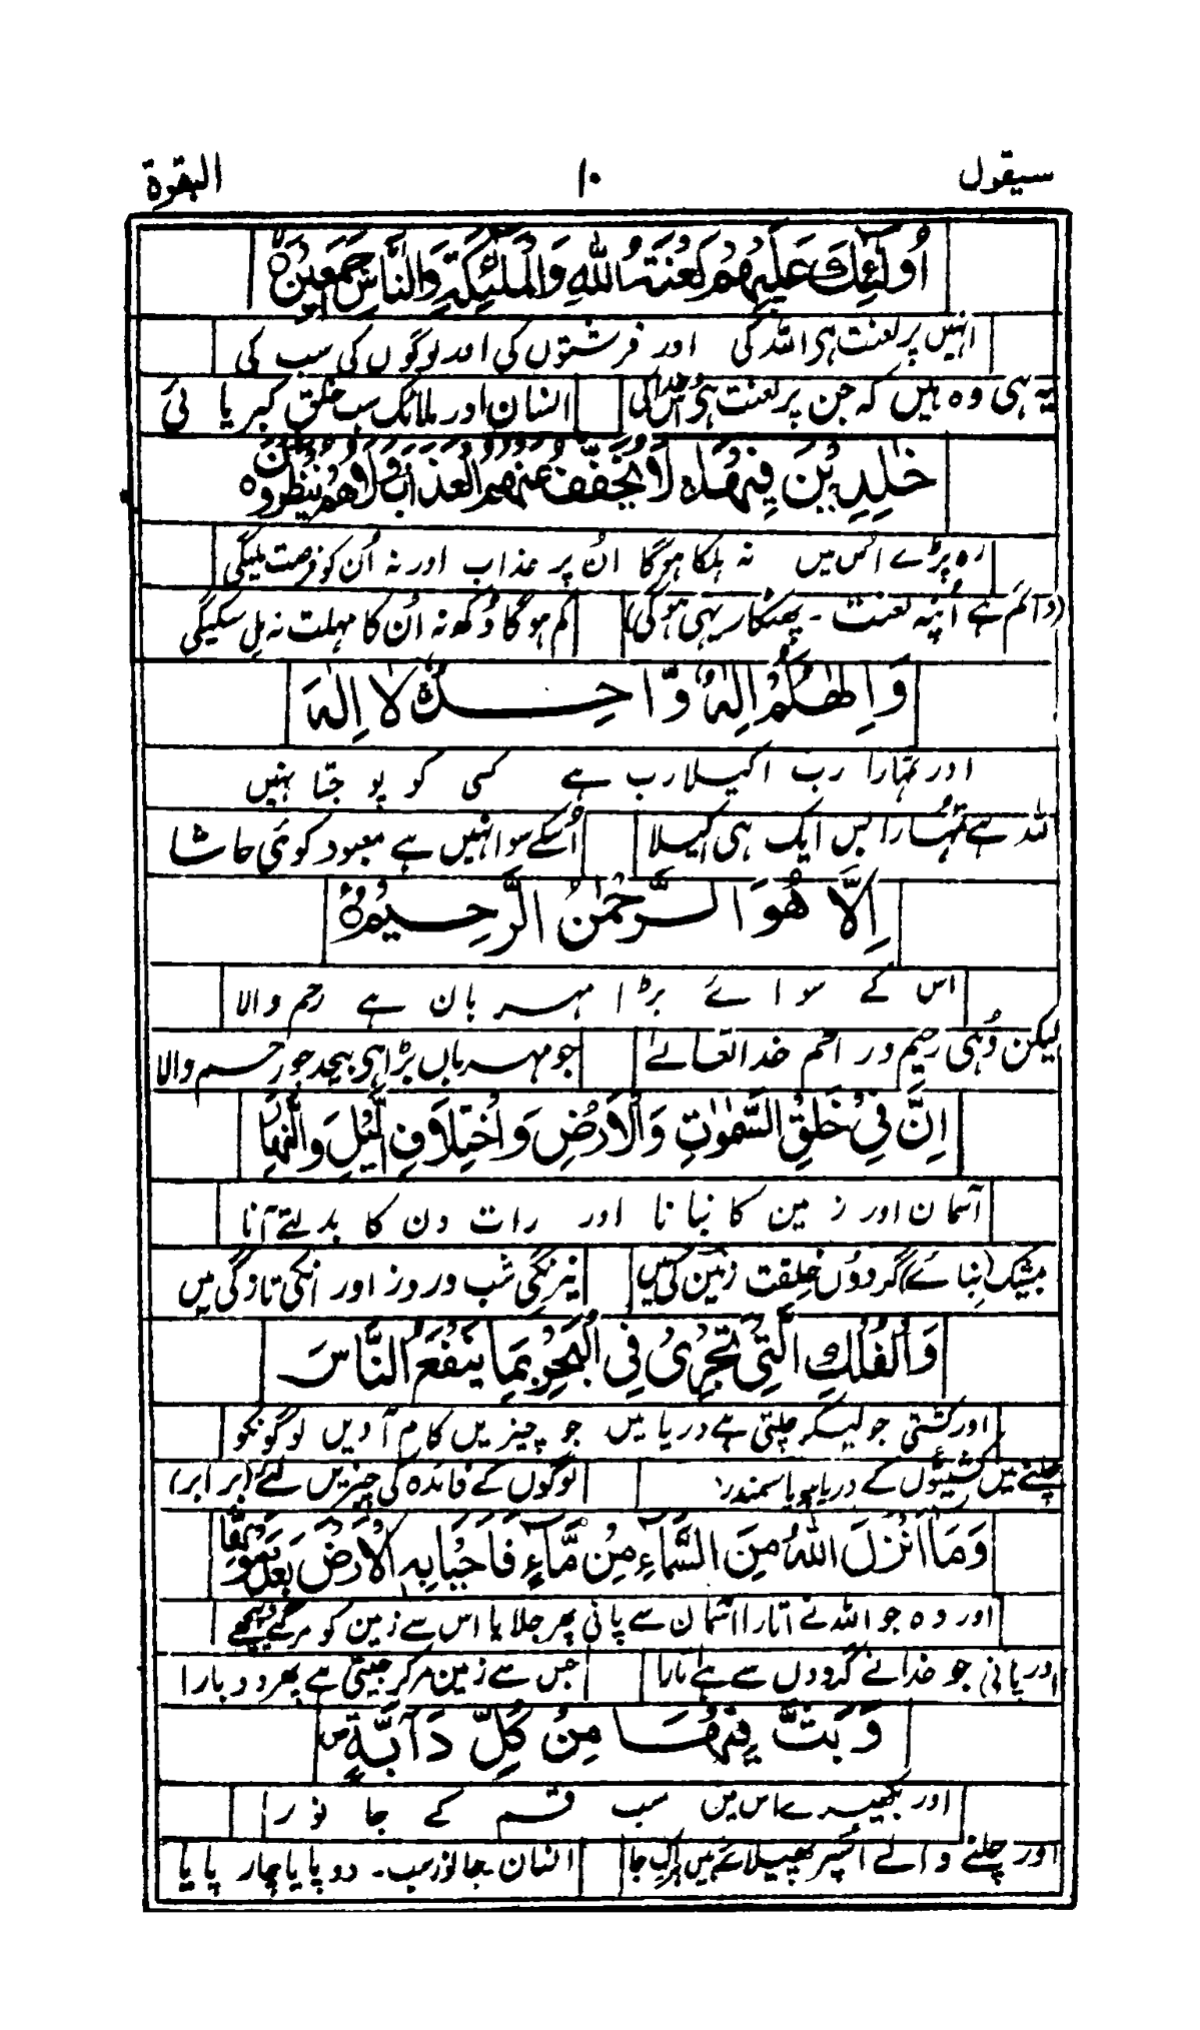 سیقول ۱۰ البقرة
اُولٰٓئِكَ عَلَيْهِمْ لَعْنَةُ اللّٰهِ وَالْمَلٰٓئِكَةِ وَالنَّاسِ اَجْمَعِيْنَ ۝
انہیں پر لعنت ہی اللہ کی اور فرشتوں کی اور لوگوں کی سب کی
یہ ہی وہ ہیں کہ جن پر لعنت ہی خدا کی انسان اور ملائک سب خلق کبریا ئی
خٰلِدِيْنَ فِيْهَا لَا يُخَفَّفُ عَنْهُمُ الْعَذَابُ وَلَا هُمْ يُنْظَرُوْنَ ۝
رہ پڑے اُس میں نہ ہلکا ہوگا اُن پر عذاب اور نہ اُن کو فرصت ملیگی
(دائم ہے اُنپہ لعنت ۔ پھٹکار رہی ہوگی) کم ہوگا دُکھ نہ اُن کا مہلت نہ مل سکیگی
وَاِلٰهُكُمْ اِلٰهٌ وَّاحِدٌ لَا اِلٰهَ
اور تمہارا رب اکیلا رب ہے کسی کو پوجنا نہیں
اللہ ہے تمہارا بس ایک ہی اکیلا اُسکے سوا نہیں ہے معبود کوئی حاشا
اِلَّا هُوَ الرَّحْمٰنُ الرَّحِيْمُ ۝
اس کے سوائے بڑا مہربان ہے رحم والا
لیکن وُہی رحیم و راحم خدا تعالےٰ جو مہرباں بڑا ہی بیحد جو رحم والا
اِنَّ فِيْ خَلْقِ السَّمٰوٰتِ وَالْاَرْضِ وَاخْتِلَافِ الَّيْلِ وَالنَّهَارِ
آسمان اور زمین کا بنانا اور رات دن کا بدلتے آنا
بیشک (بنائے) گردوں خلقت زمین کی میں نیرنگی شب و روز اور انکی تازگی میں
وَالْفُلْكِ الَّتِيْ تَجْرِيْ فِي الْبَحْرِ بِمَا يَنْفَعُ النَّاسَ
اور کشتی جو لیکر چلتی ہے دریا میں جو چیزیں کام آویں لوگونکو
چلنے میں کشتیوں کے دریا ہو یا سمندر لوگوں کے فائدہ کی چیزیں لئے (برابر)
وَمَا اَنْزَلَ اللّٰهُ مِنَ السَّمَآءِ مِنْ مَّآءٍ فَاَحْيَا بِهِ الْاَرْضَ بَعْدَ مَوْتِهَا
اور وہ جو اللہ نے اتارا آسمان سے پانی پھر جلایا اس سے زمین کو مر گئے پیچھے
اور پانی جو خدا نے گردوں سے ہے اتارا جس سے زمین مر کر جیتی ہے پھر دوبارا
وَبَثَّ فِيْهَا مِنْ كُلِّ دَآبَّةٍ ص
اور بکھیرے اس میں سب قسم کے جانور
اور چلنے والے اسپر پھیلائے ہیں ہر اک جا انسان جانور سب ۔ دو پایا چار پایا